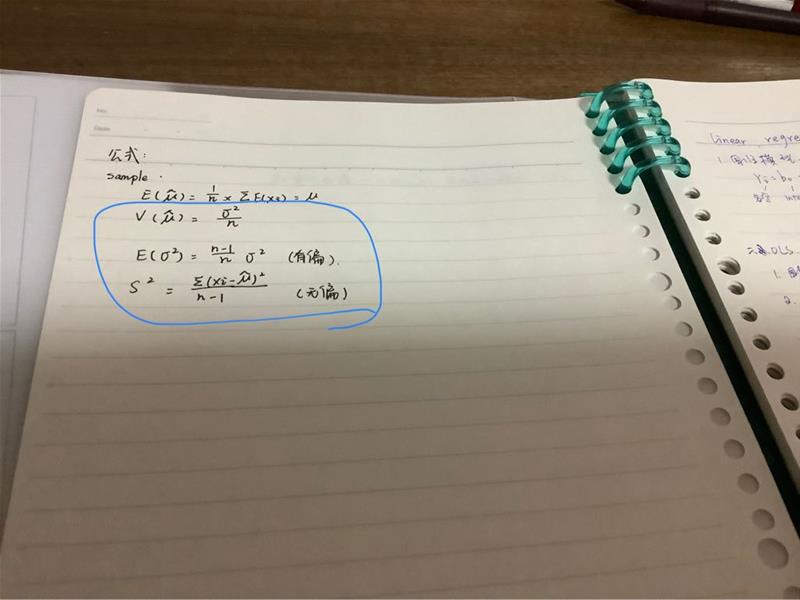 No:
Date
公式:
sample.
E(μ̂) = 1/n × Σ E(xi) = μ
V(μ̂) = σ²/n
E(σ²) = n-1/n σ² (有偏).
S² = Σ(xi-μ̂)²/n-1 (无偏)
linear regre
1. 回归模
Yi = b0
二、OLS.
1.
2.